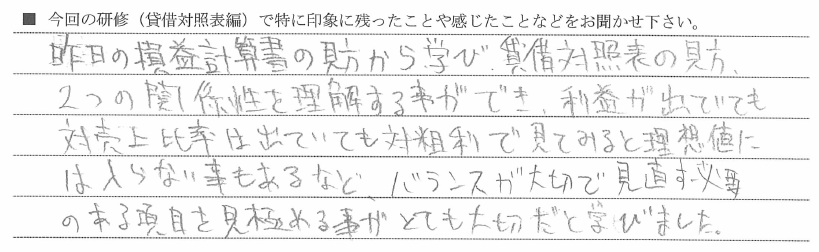 ■ 今回の研修（貸借対照表編）で特に印象に残ったことや感じたことなどをお聞かせ下さい。
昨日の損益計算書の見方から学び、貸借対照表の見方、
2つの関係性を理解する事ができ、利益が出ていても
対売上比率は出ていても対粗利で見てみると理想値に
は入らない事もあるなど、バランスが大切で見直す必要
のある項目を見極める事がとても大切だと学びました。